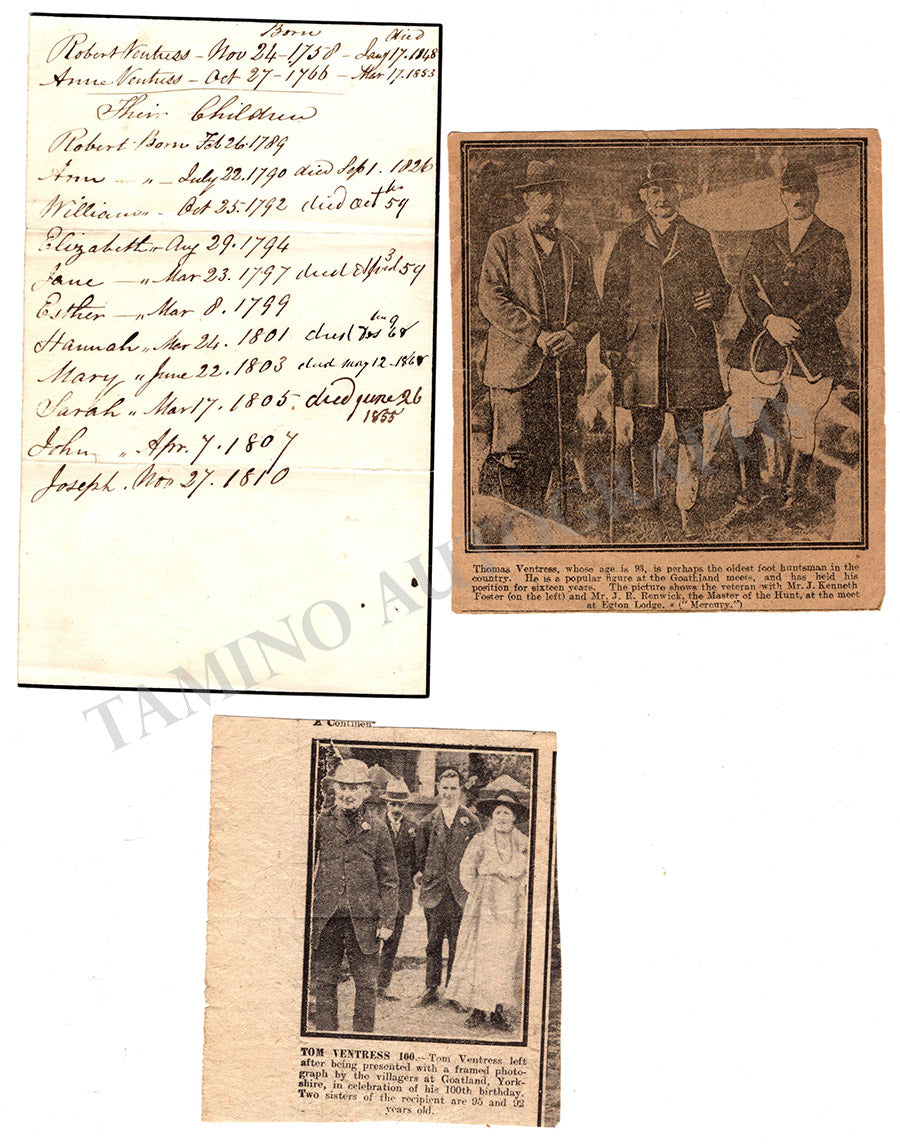 Born died
Robert Ventress - Nov 24 - 1758 - Jany 17. 1848
Anne Ventress - Oct 27 - 1766 - Mar 17. 1853
Their Children
Robert Born Feb 26. 1789
Ann — " — July 22. 1790 died Sep 1. 1826
William " - Oct 25. 1792 died Oct 59
Elizabeth " Aug 29. 1794
Jane — " Mar 23. 1797 died April 3 59
Esther — " Mar 8. 1799
Hannah " Mar 24. 1801 died 68
Mary " June 22. 1803 died may 12. 1868
Sarah " Mar 17. 1805 died June 26
1855
John " Apr. 7. 1807
Joseph. Nov 27. 1810
Thomas Ventress, whose age is 93, is perhaps the oldest foot huntsman in the
country. He is a popular figure at the Goathland meets, and has held his
position for sixteen years. The picture shows the veteran with Mr. J. Kenneth
Foster (on the left) and Mr. J. R. Renwick, the Master of the Hunt, at the meet
at Egton Lodge. ("Mercury.")
A Continen
TOM VENTRESS 100.—Tom Ventress left
after being presented with a framed photo-
graph by the villagers at Goatland, York-
shire, in celebration of his 100th birthday.
Two sisters of the recipient are 95 and 92
years old.
TAMINO AUTOGRAPHS